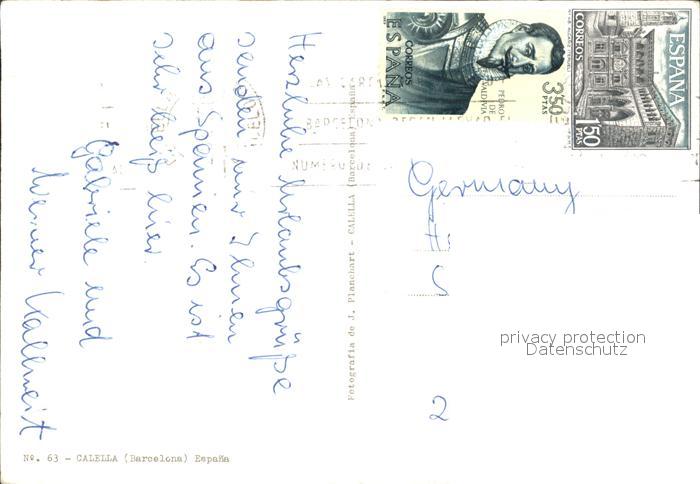 Herzliche Urlaubsgrüße
senden wir Ihnen
aus Spanien. Es ist
sehr heiß hier.
Gabriele und
Werner
Nº. 63 - CALELLA (Barcelona) España
Fotografía de J. Planchart - CALELLA (Barcelona) España
ESPAÑA
CORREOS
PEDRO
DE
VALDIVIA
3'50
PTAS
ESPAÑA
CORREOS
1'50
PTAS
BARCELONA
Germany
privacy protection
Datenschutz
2